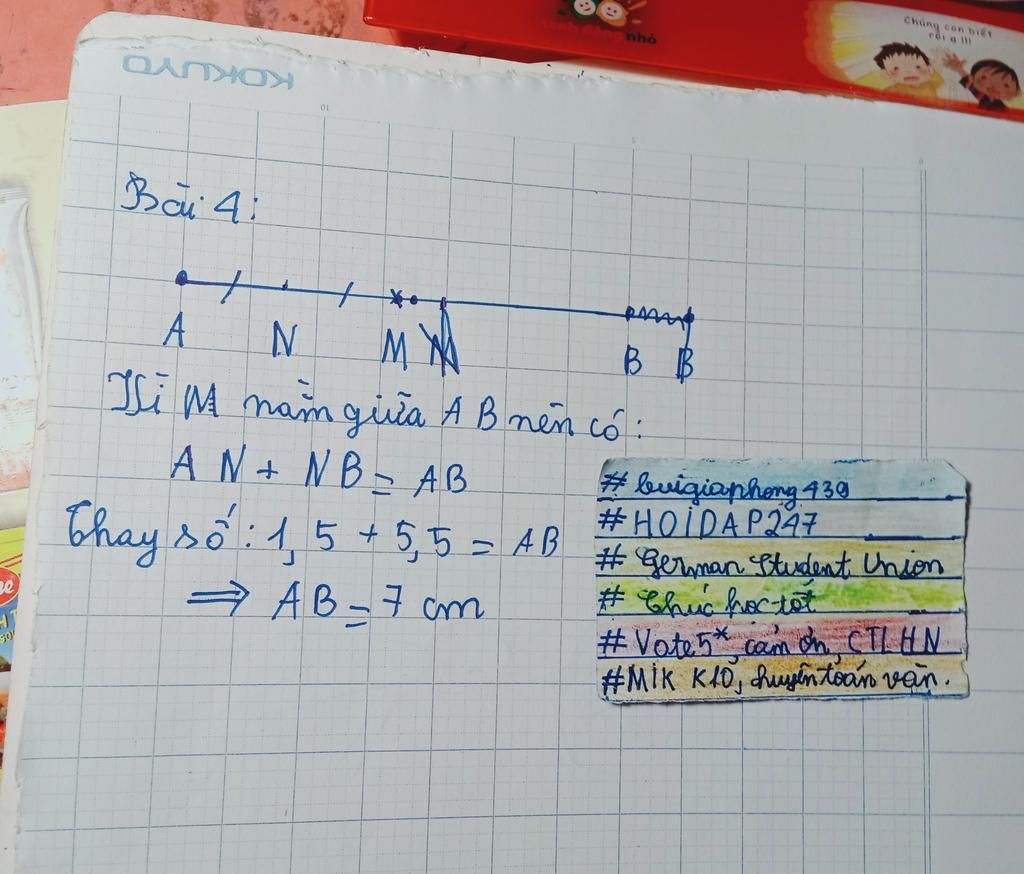 nhỏ
Chúng con biết
rồi ạ !!!
KOKUYO
10
5
0
Bài 4:
A N M M B B
Vì M nằm giữa A B nên có:
A N + N B = AB
Thay số: 1,5 + 5,5 = AB
⇒ AB = 7 cm
# buigiaphong439
# HOIDAP247
# German Student Union
# Chúc học tốt
# Vote 5*, cảm ơn, CTLHN
#MIK K10, chuyên toán văn.